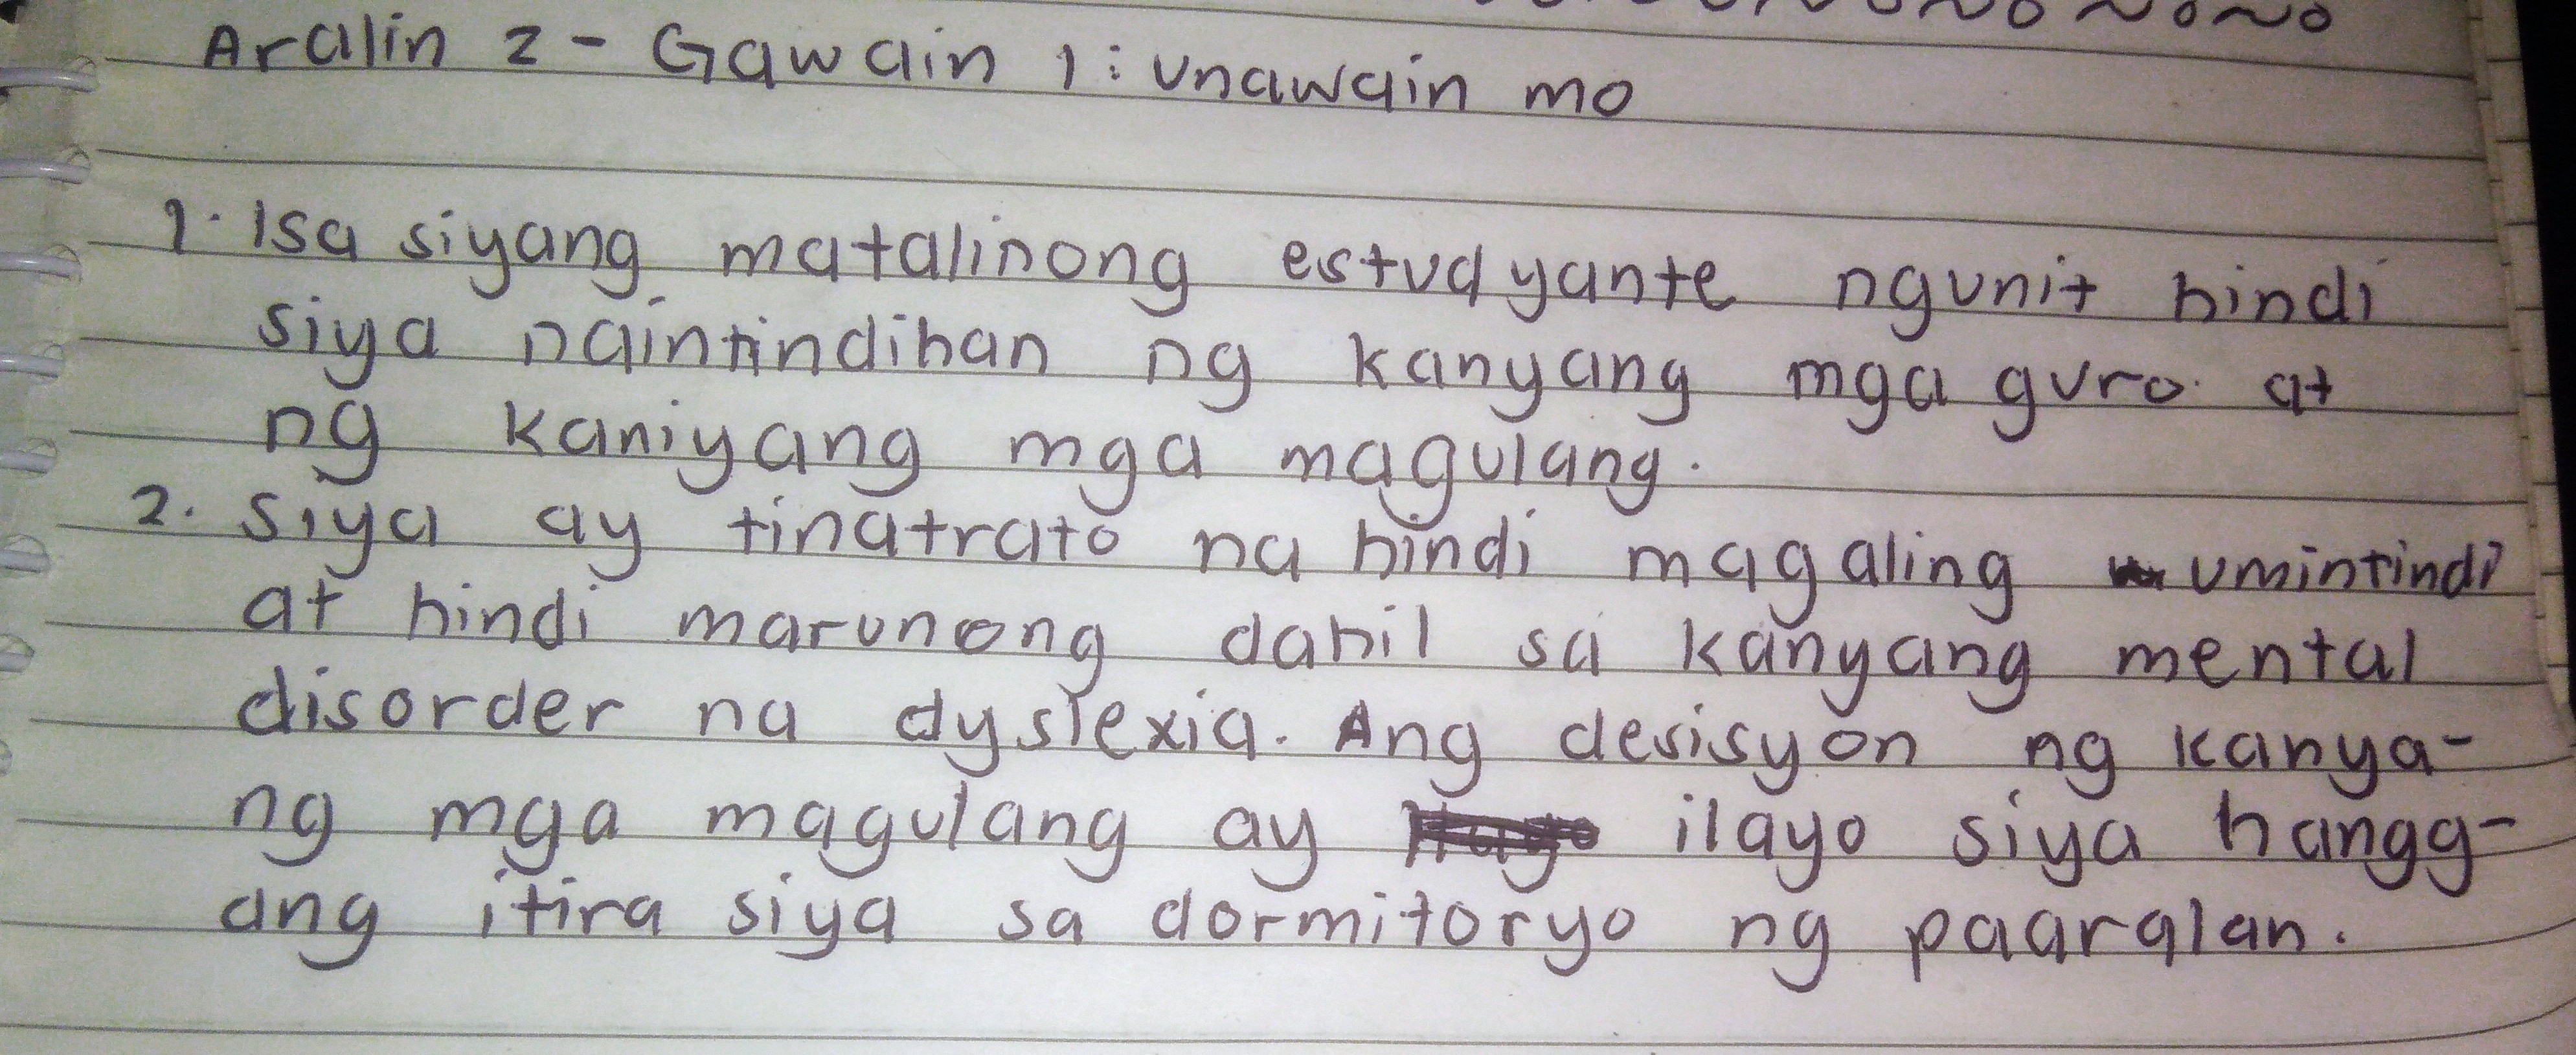 Aralin 2 - Gawain 1: Unawain mo
1. Isa siyang matalinong estudyante ngunit hindi
siya naintindihan ng kanyang mga guro at
ng kaniyang mga magulang.
2. Siya ay tinatrato na hindi magaling umintindi
at hindi marunong dahil sa kanyang mental
disorder na dyslexia. Ang desisyon ng kanya-
ng mga magulang ay ilayo siya hangg-
ang itira siya sa dormitoryo ng paaralan.